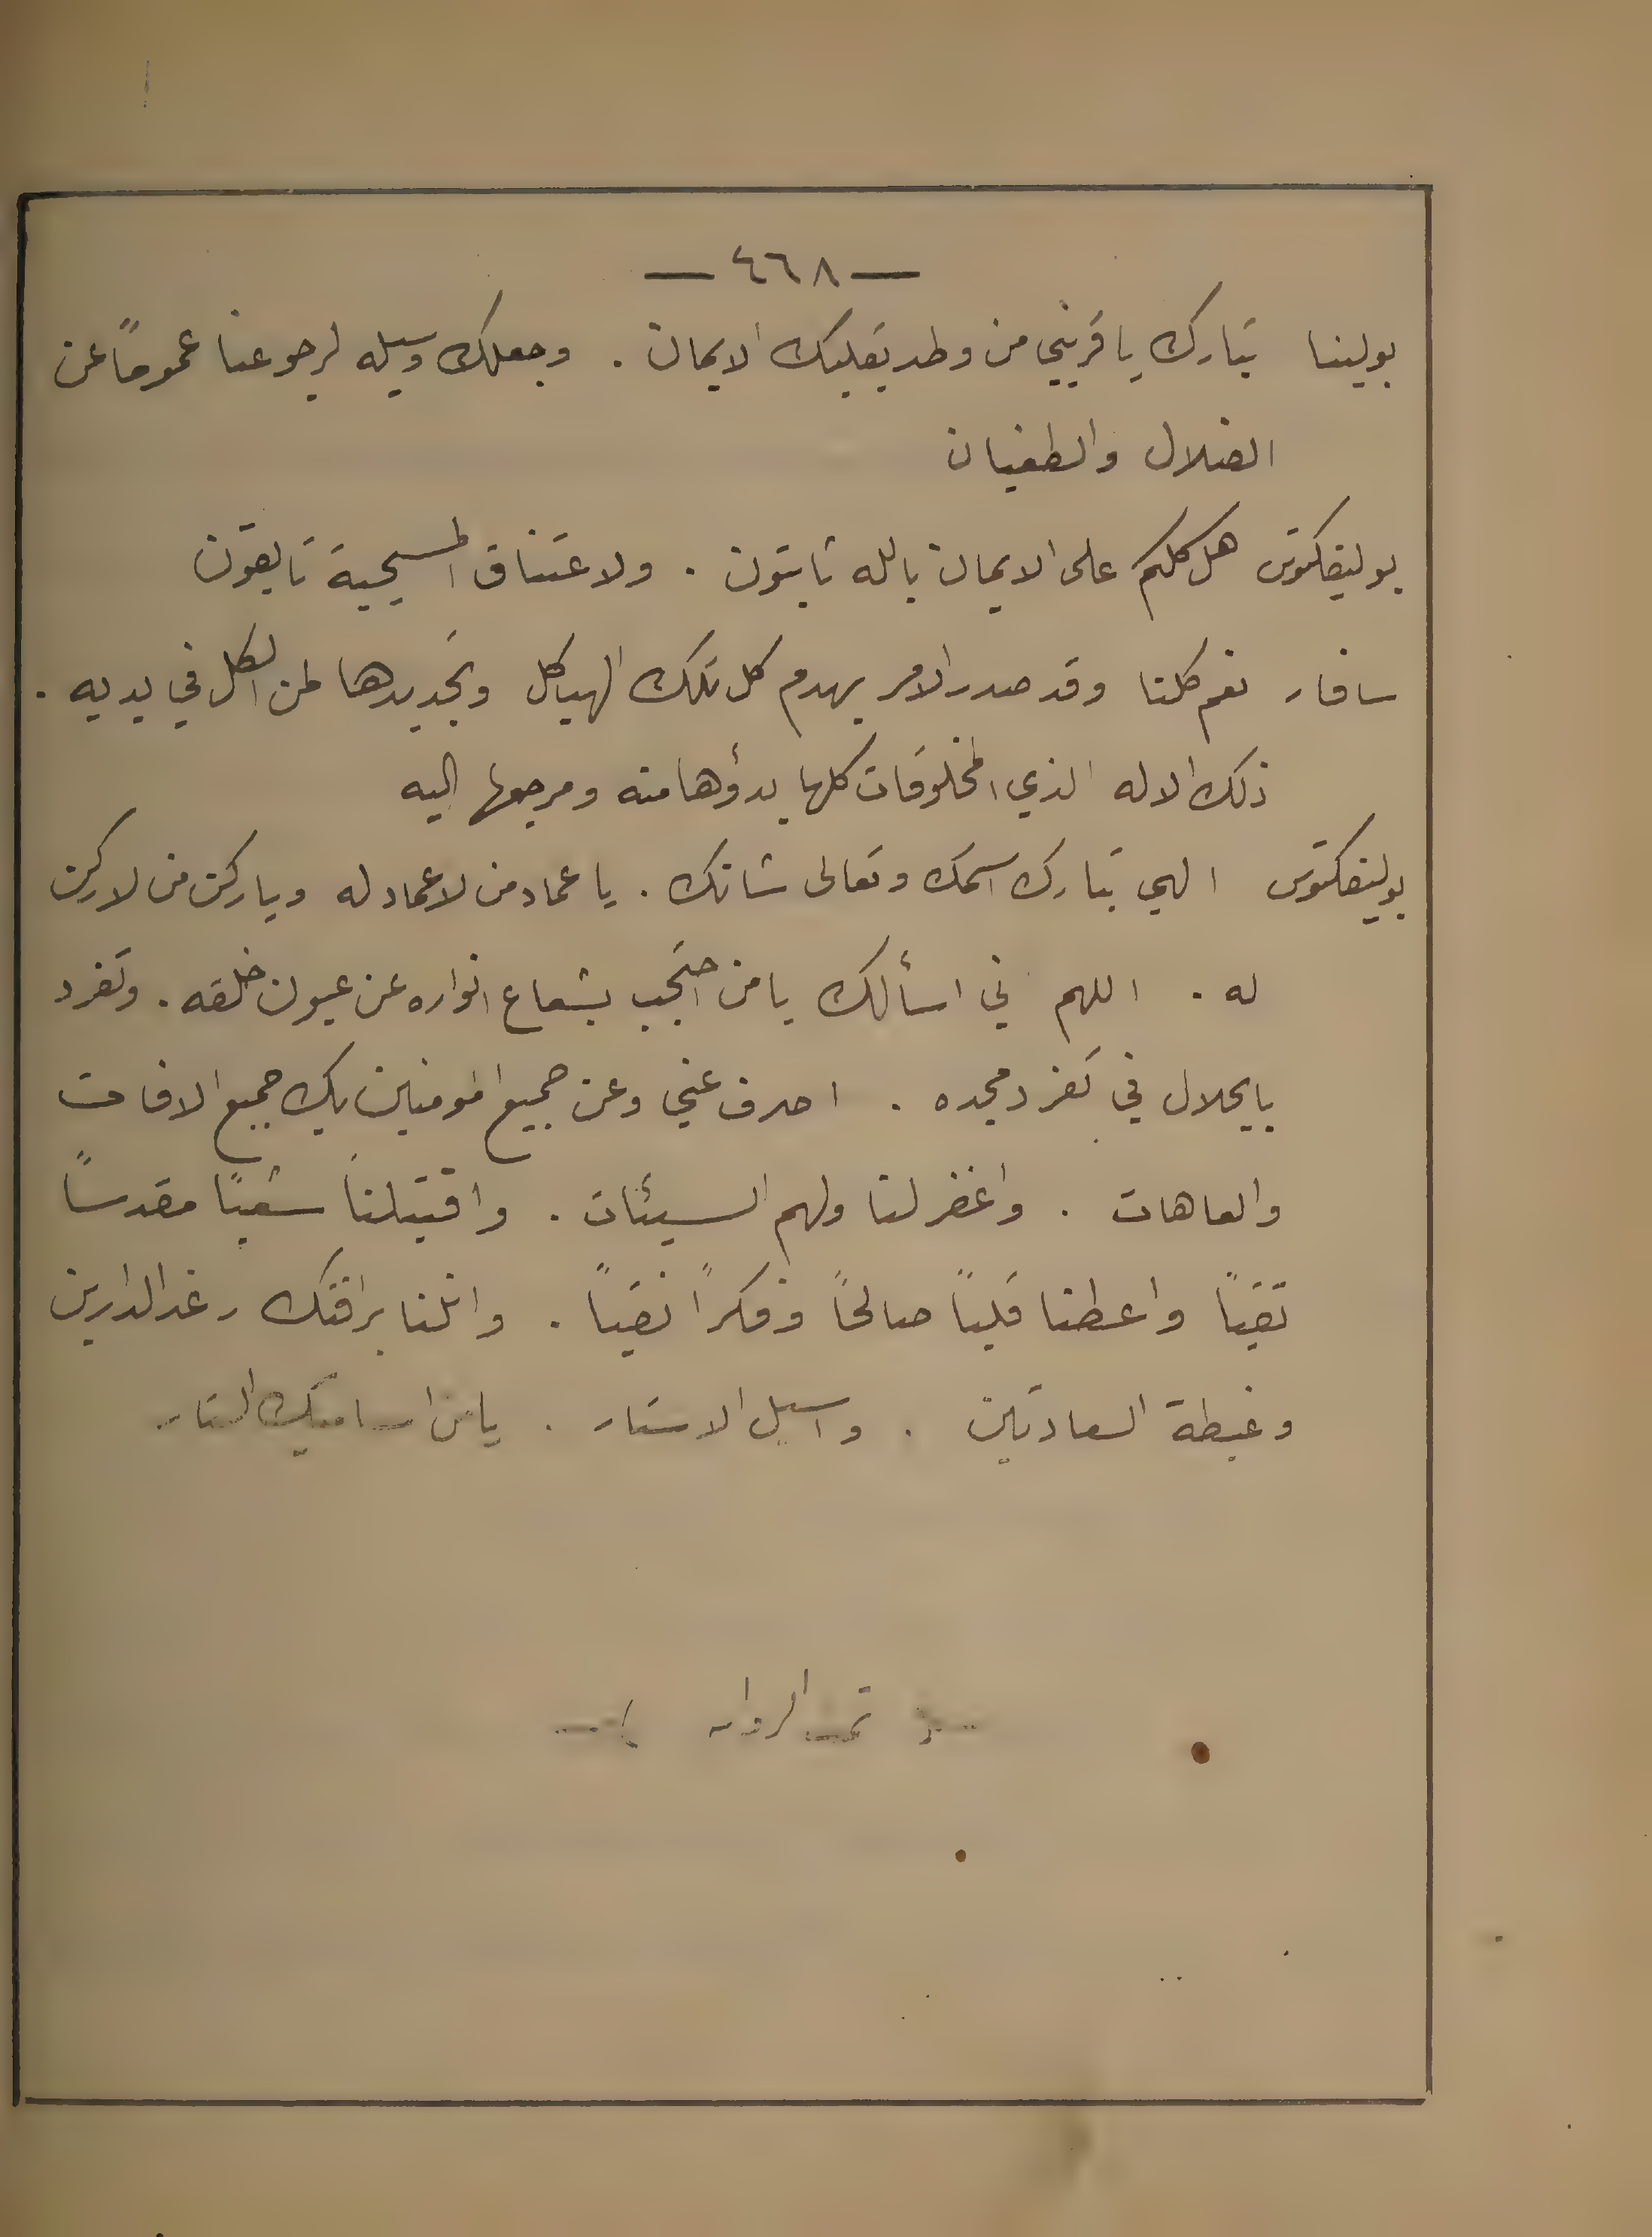 — ٤٦٨ —
بولينا تبارك يا قريني من وطد بقلبك الايمان . وجعلك وسيله لرجوعنا عموماً عن
الضلال والطغيان
بوليفكتوس هل كلكم على الايمان بالله ثابتون . ولاعتناق المسيحية تايقون
سافار نعم كلنا وقد صدر الامر بهدم كل تلك الهياكل وتجديدها لمن الكل في يديه .
ذلك الاله الذي المخلوقات كلها بدؤها منه ومرجعها اليه
بوليفكتوس الهي تبارك اسمك وتعالى شانك . يا عماد من لا عماد له ويا ركن من لا ركن
له . اللهم اني اسألك يا من احتجب بشعاع انواره عن عيون خلقه . وتفرد
بالجلال في تفرد مجده . اصرف عني وعن جميع المومنين بك جميع الافات
والعاهات . واغفر لنا ولهم السيئات . واقتبلنا شعباً مقدساً
تقياً واعطنا قلباً صالحاً وفكراً نقياً . وانلنا برافتك رغد الدارين
وغبطة السعادتين . واسبل الاستار . يا من اساميك الستار
تمت الروايه